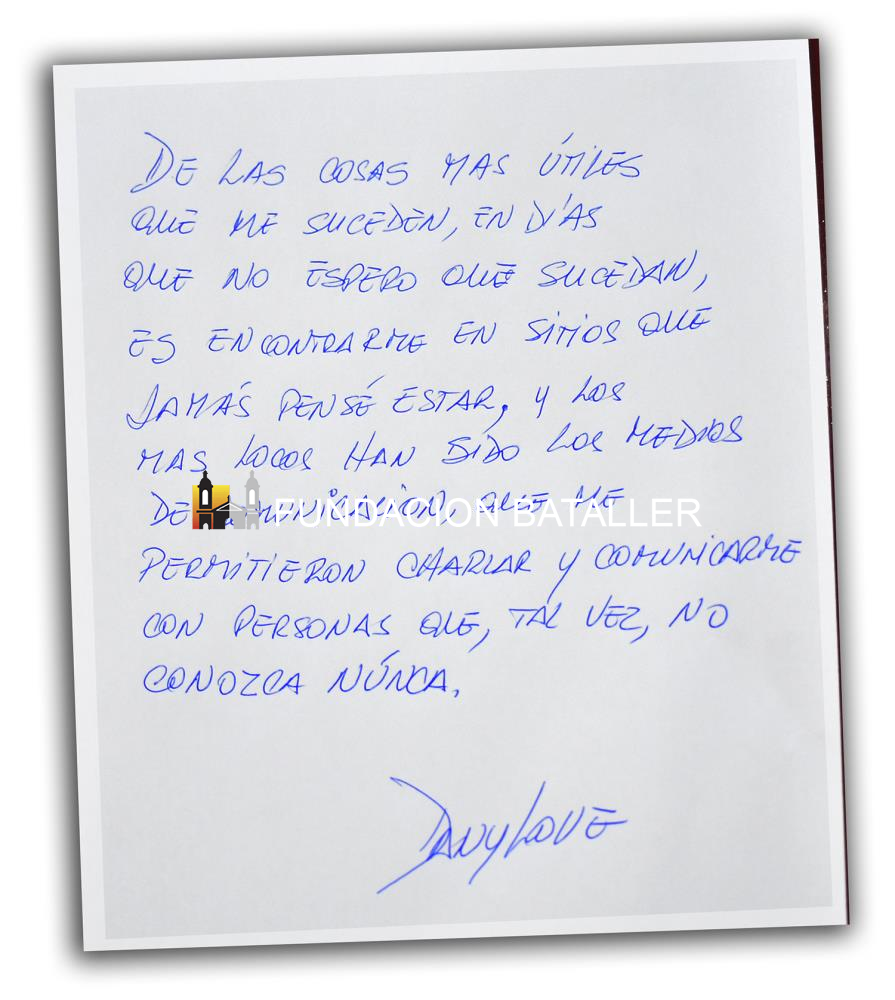 DE LAS COSAS MAS ÚTILES
QUE ME SUCEDEN, EN DÍAS
QUE NO ESPERO QUE SUCEDAN,
ES ENCONTRARME EN SITIOS QUE
JAMÁS PENSÉ ESTAR, Y LOS
MAS LOCOS HAN SIDO LOS MEDIOS
DE COMUNICACION, QUE ME
FUNDACION BATALLER
PERMITIERON CHARLAR Y COMUNICARME
CON PERSONAS QUE, TAL VEZ, NO
CONOZCA NÚNCA.
DANYLOVE